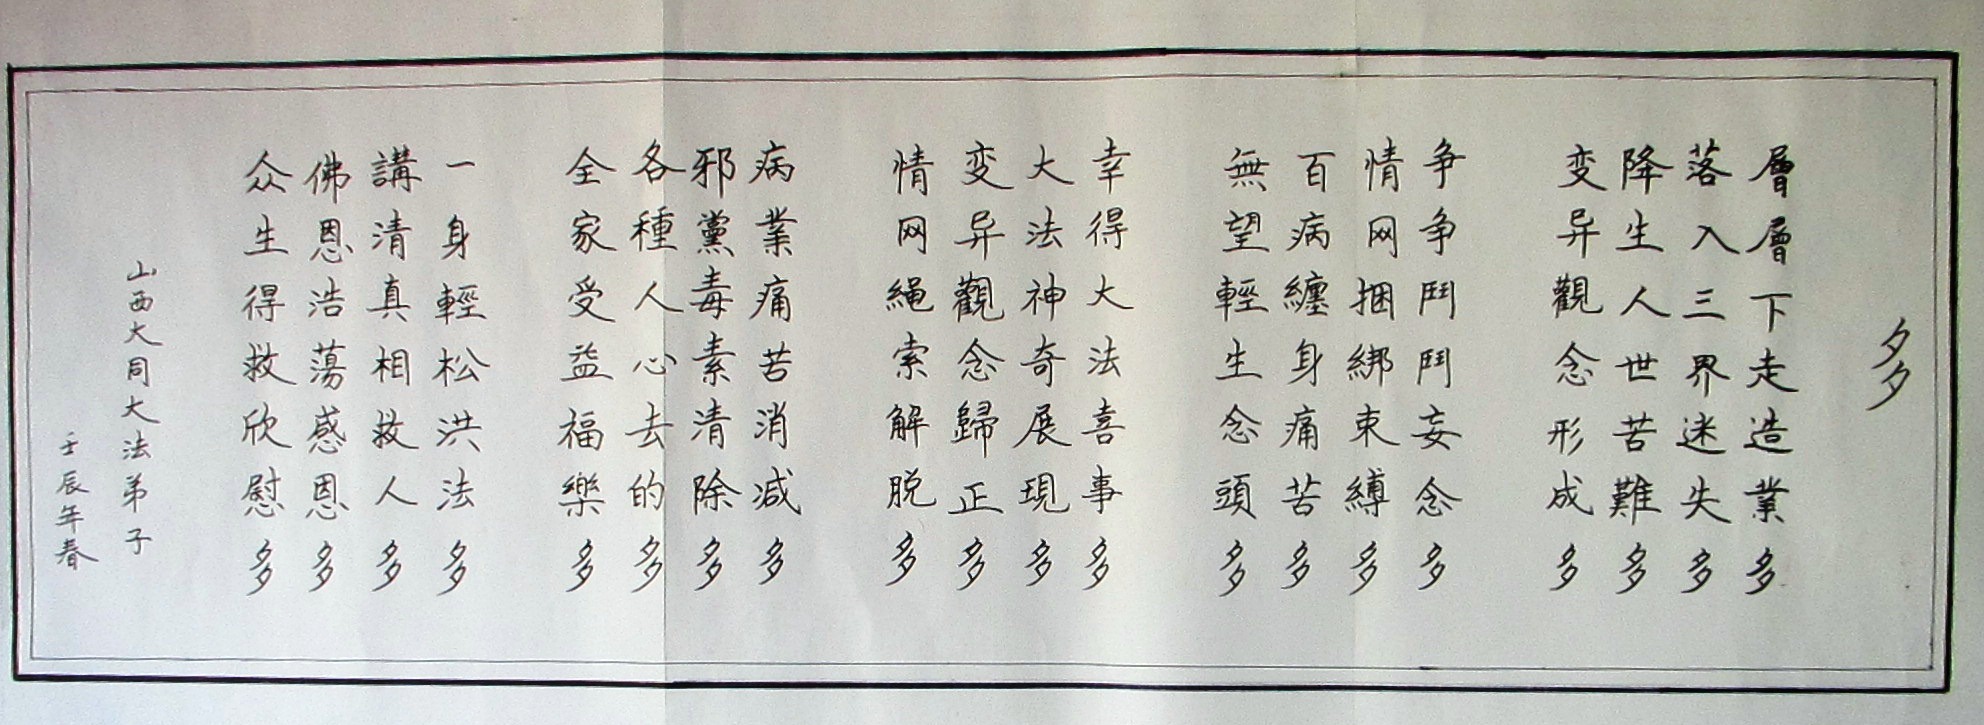 多
層層下走造業多
落入三界迷失多
降生人世苦難多
变异觀念形成多
争争鬥鬥妄念多
情网捆綁束縛多
百病纏身痛苦多
無望輕生念頭多
幸得大法喜事多
大法神奇展現多
变异觀念歸正多
情网繩索解脱多
病業痛苦消减多
邪黨毒素清除多
各種人心去的多
全家受益福樂多
一身輕松洪法多
講清真相救人多
佛恩浩蕩感恩多
众生得救欣慰多
山西大同大法弟子
壬辰年春